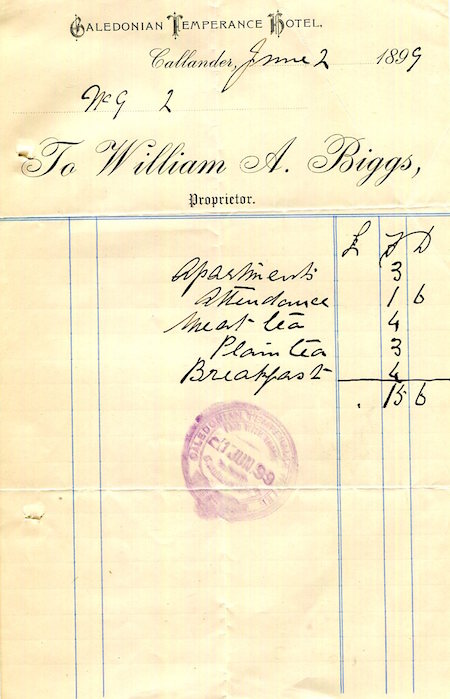 CALEDONIAN TEMPERANCE HOTEL.
Callander, June 2 1899
2
To William A. Biggs,
Proprietor.
£ S D
Apartments 3
Attendance 1 6
Meat tea 4
Plain tea 3
Breakfast 4
. 15 6
CALEDONIAN TEMPERANCE